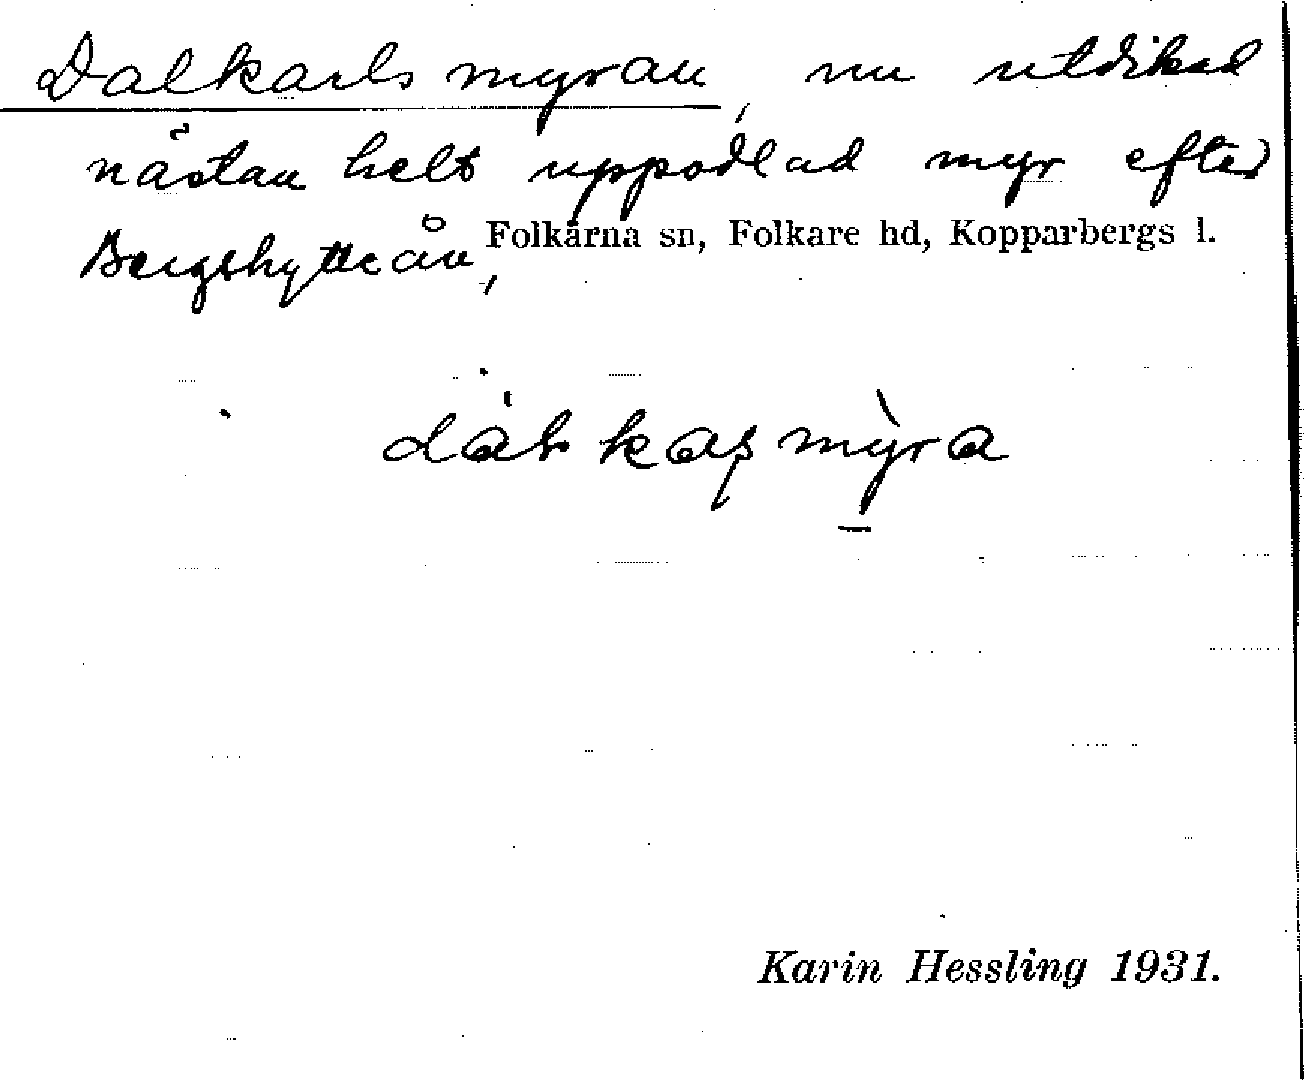 Dalkarlsmyran, nu utdikad
nästan helt uppodlad myr efter
Bergshytteån,
Folkärna sn, Folkare hd, Kopparbergs l.
Karin Hessling 1931.